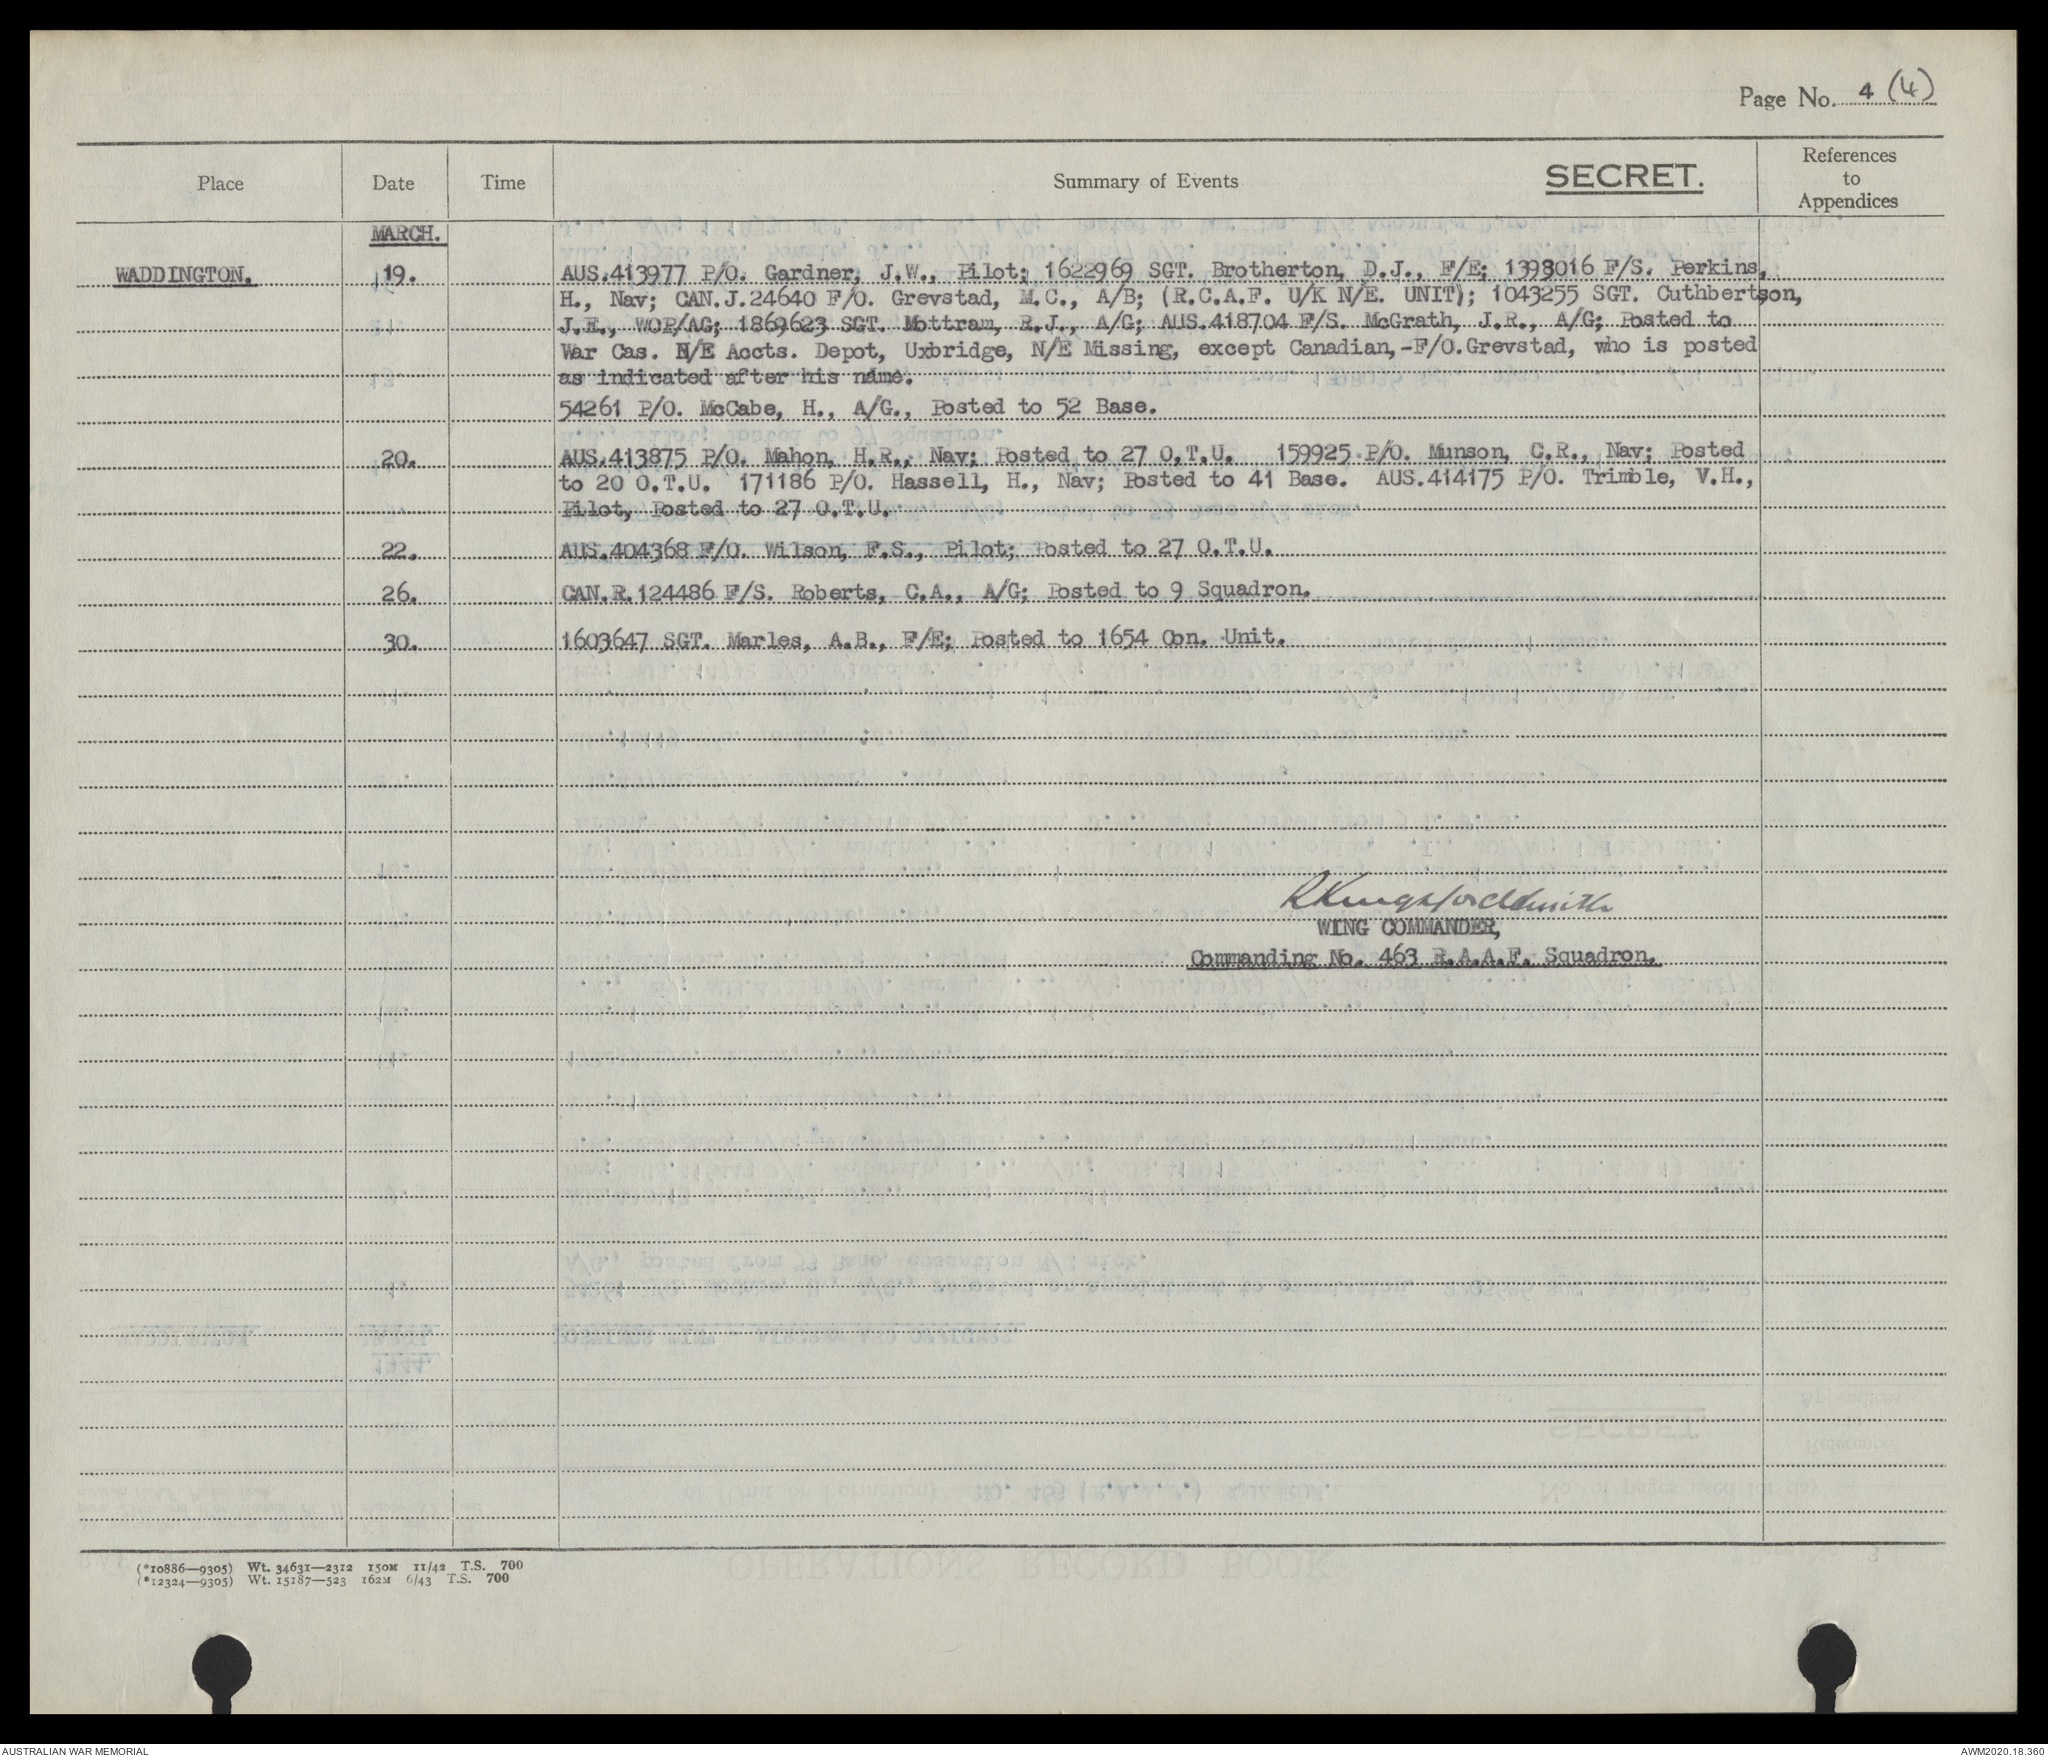 Page No. 4 (4)
Place Date Time Summary of Events SECRET. References to Appendices
MARCH.
WADDINGTON. 19. AUS.413977 P/O. Gardner, J.W., Pilot; 1622969 SGT. Brotherton, D.J., F/E; 1398016 F/S. Perkins,
H., Nav; CAN.J.24640 F/O. Grevstad, M.C., A/B; (R.C.A.F. U/K N/E. UNIT); 1043255 SGT. Cuthbertson,
J.E., WOP/AG; 1869623 SGT. Mottram, R.J., A/G; AUS.418704 F/S. McGrath, J.R., A/G; Posted to
War Cas. N/E Accts. Depot, Uxbridge, N/E Missing, except Canadian,-F/O.Grevstad, who is posted
as indicated after his name.
54261 P/O. McCabe, H., A/G., Posted to 52 Base.
20. AUS.413875 P/O. Mahon, H.R., Nav; Posted to 27 O.T.U. 159925 P/O. Munson, C.R., Nav; Posted
to 20 O.T.U. 171186 P/O. Hassell, H., Nav; Posted to 41 Base. AUS.414175 P/O. Trimble, V.H.,
Pilot, Posted to 27 O.T.U.
22. AUS.404368 F/O. Wilson, F.S., Pilot; Posted to 27 O.T.U.
26. CAN.R.124486 F/S. Roberts, C.A., A/G; Posted to 9 Squadron.
30. 1603647 SGT. Marles, A.B., F/E; Posted to 1654 Con. Unit.
RKingsfordSmith
WING COMMANDER,
Commanding No. 463 R.A.A.F. Squadron.
(*10886—9305) Wt. 34631—2312 150M 11/42 T.S. 700
(*12324—9305) Wt. 15187—523 162M 6/43 T.S. 700
AUSTRALIAN WAR MEMORIAL AWM2020.18.360